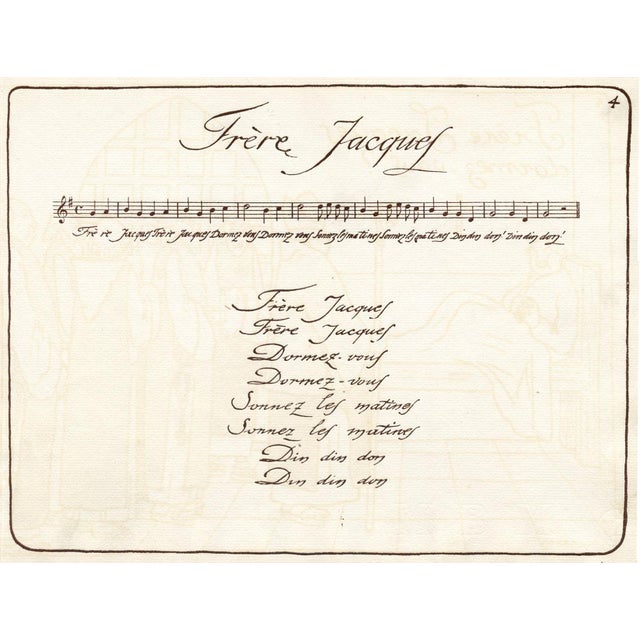 4
Frère Jacques
Frè re Jacques Frère Jacques Dormez vous Dormez vous Sonnez les matines Sonnez les matines Din din don! Din din don!
Frère Jacques
Frère Jacques
Dormez-vous
Dormez-vous
Sonnez les matines
Sonnez les matines
Din din don
Din din don